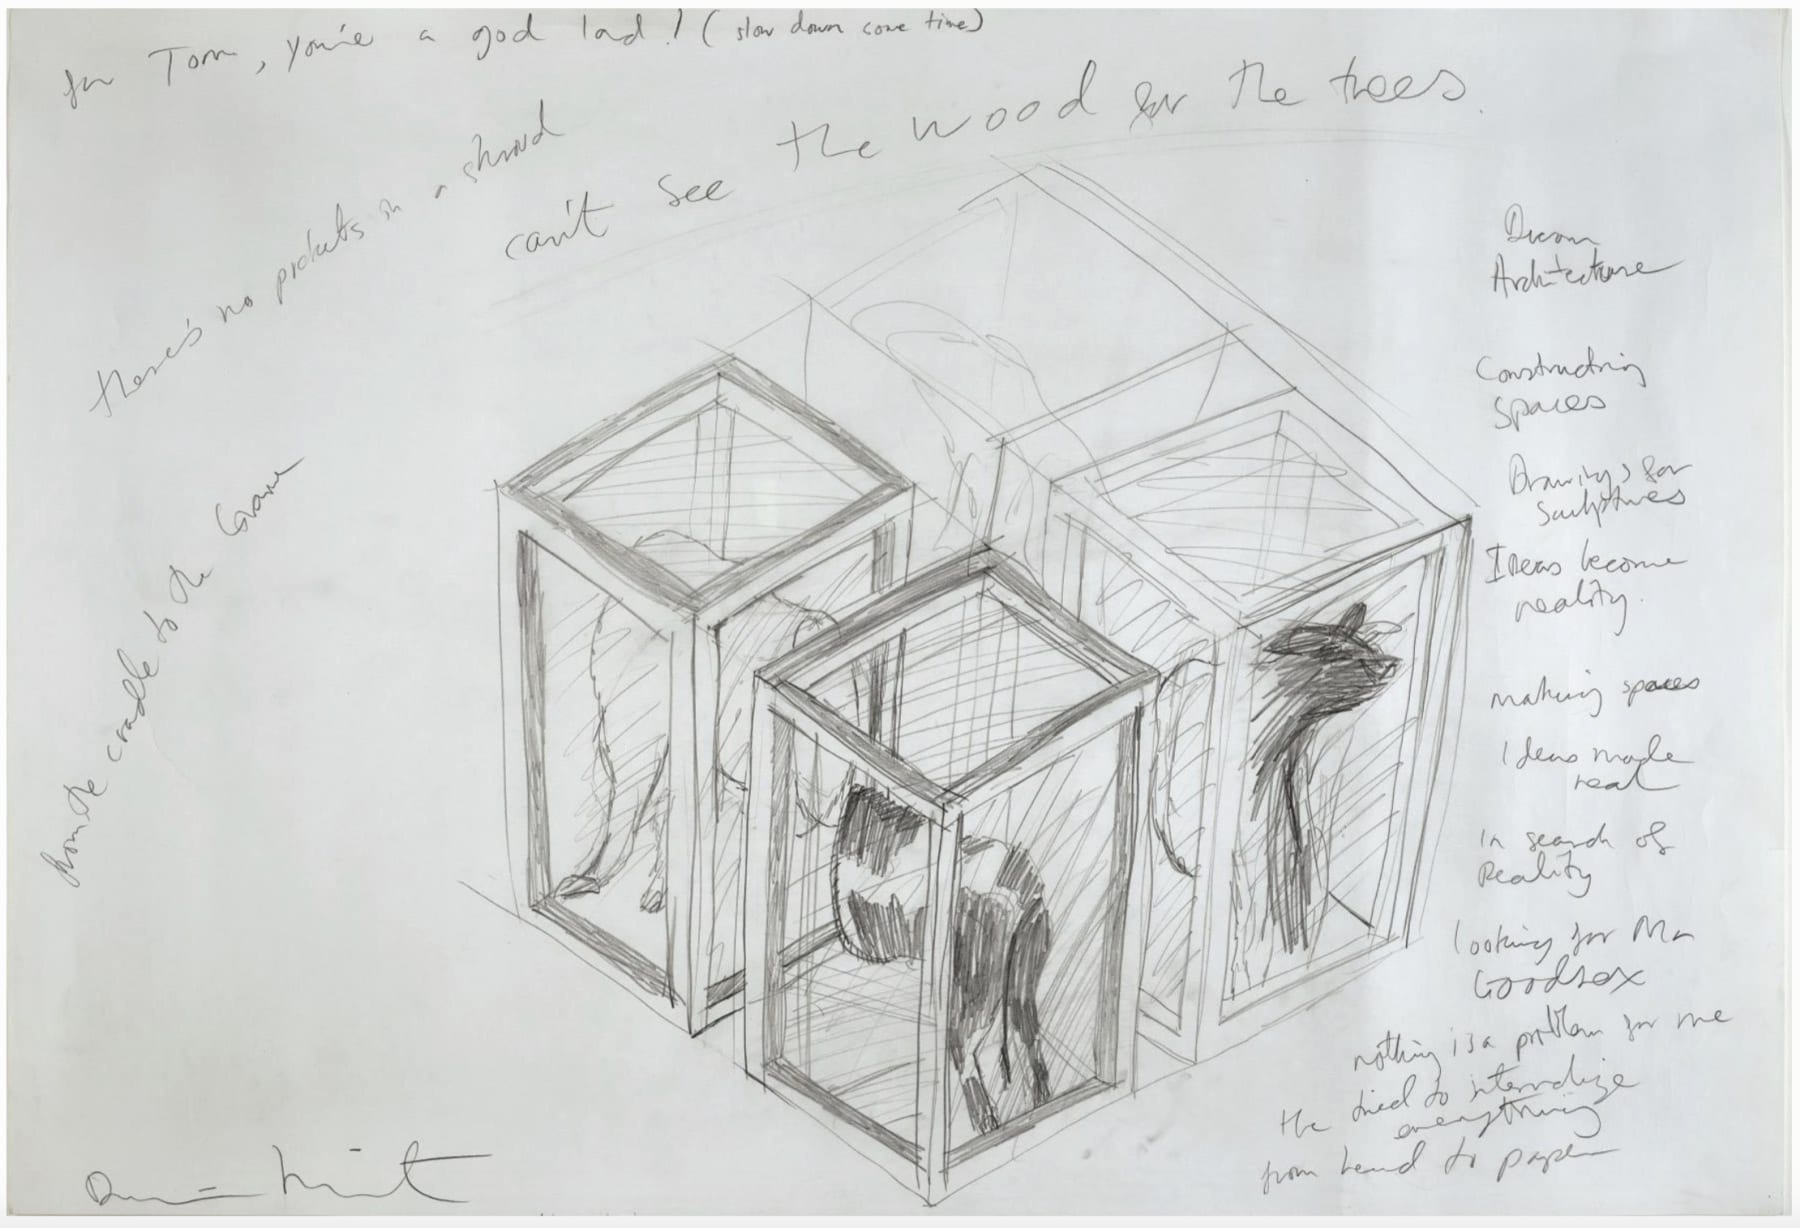 for Tom, you're a god lad! (slow down some time)
can't see the wood for the trees.
there's no pockets in a shroud
from the cradle to the Grave
Dream
Architecture
Constructing
Spaces
Drawings for
Sculptures
Ideas become
reality.
making spaces
Ideas made
real
In search of
Reality
looking for Mr
Goodsex
nothing is a problem for me
He tried to internalize
everything
from head to paper
Damien Hirst